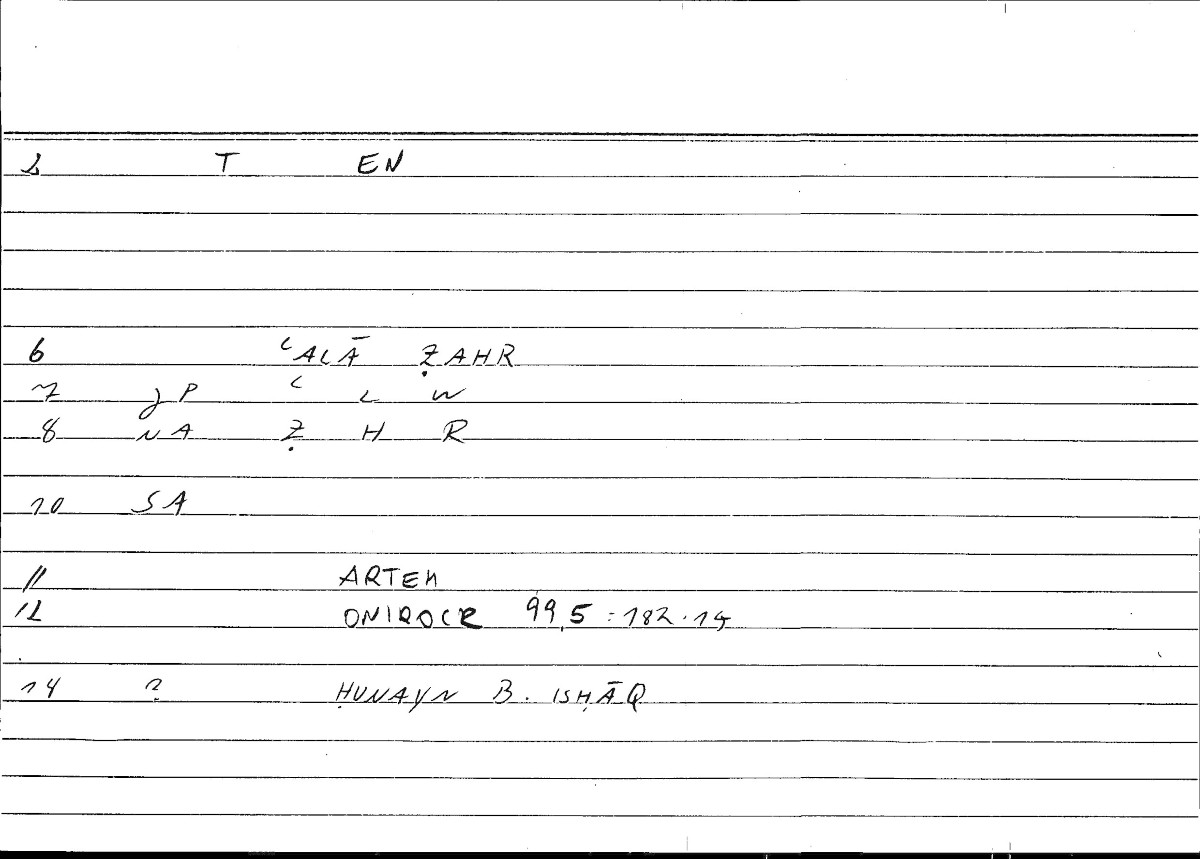 2 T EN
6 ʿALĀ ẒAHR
7 JP ʿ L W
8 NA Ẓ H R
10 SA
11 ARTEM
12 ONIROCR 99,5 : 182.14
14 ? ḤUNAYN B. ISḤĀQ